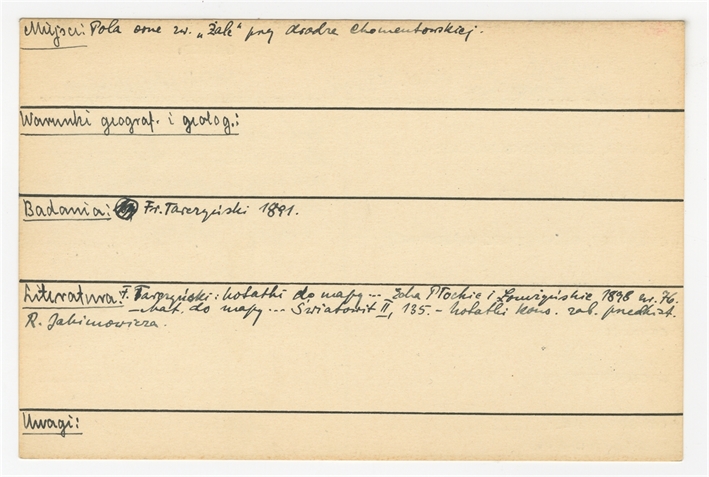 Miejsce: Pola orne zw. „Żale" przy drodze Chomentowskiej.
Warunki geograf. i geolog.:
Badania: Fr. Tarczyński 1891.
Literatura: F. Tarczyński: Notatki do mapy ... Echa Płockie i Łomżyńskie 1898 nr. 76.
— Mat. do mapy ... Światowit II, 135. – Notatki kons. zab. predhist.
R. Jakimowicza.
Uwagi: